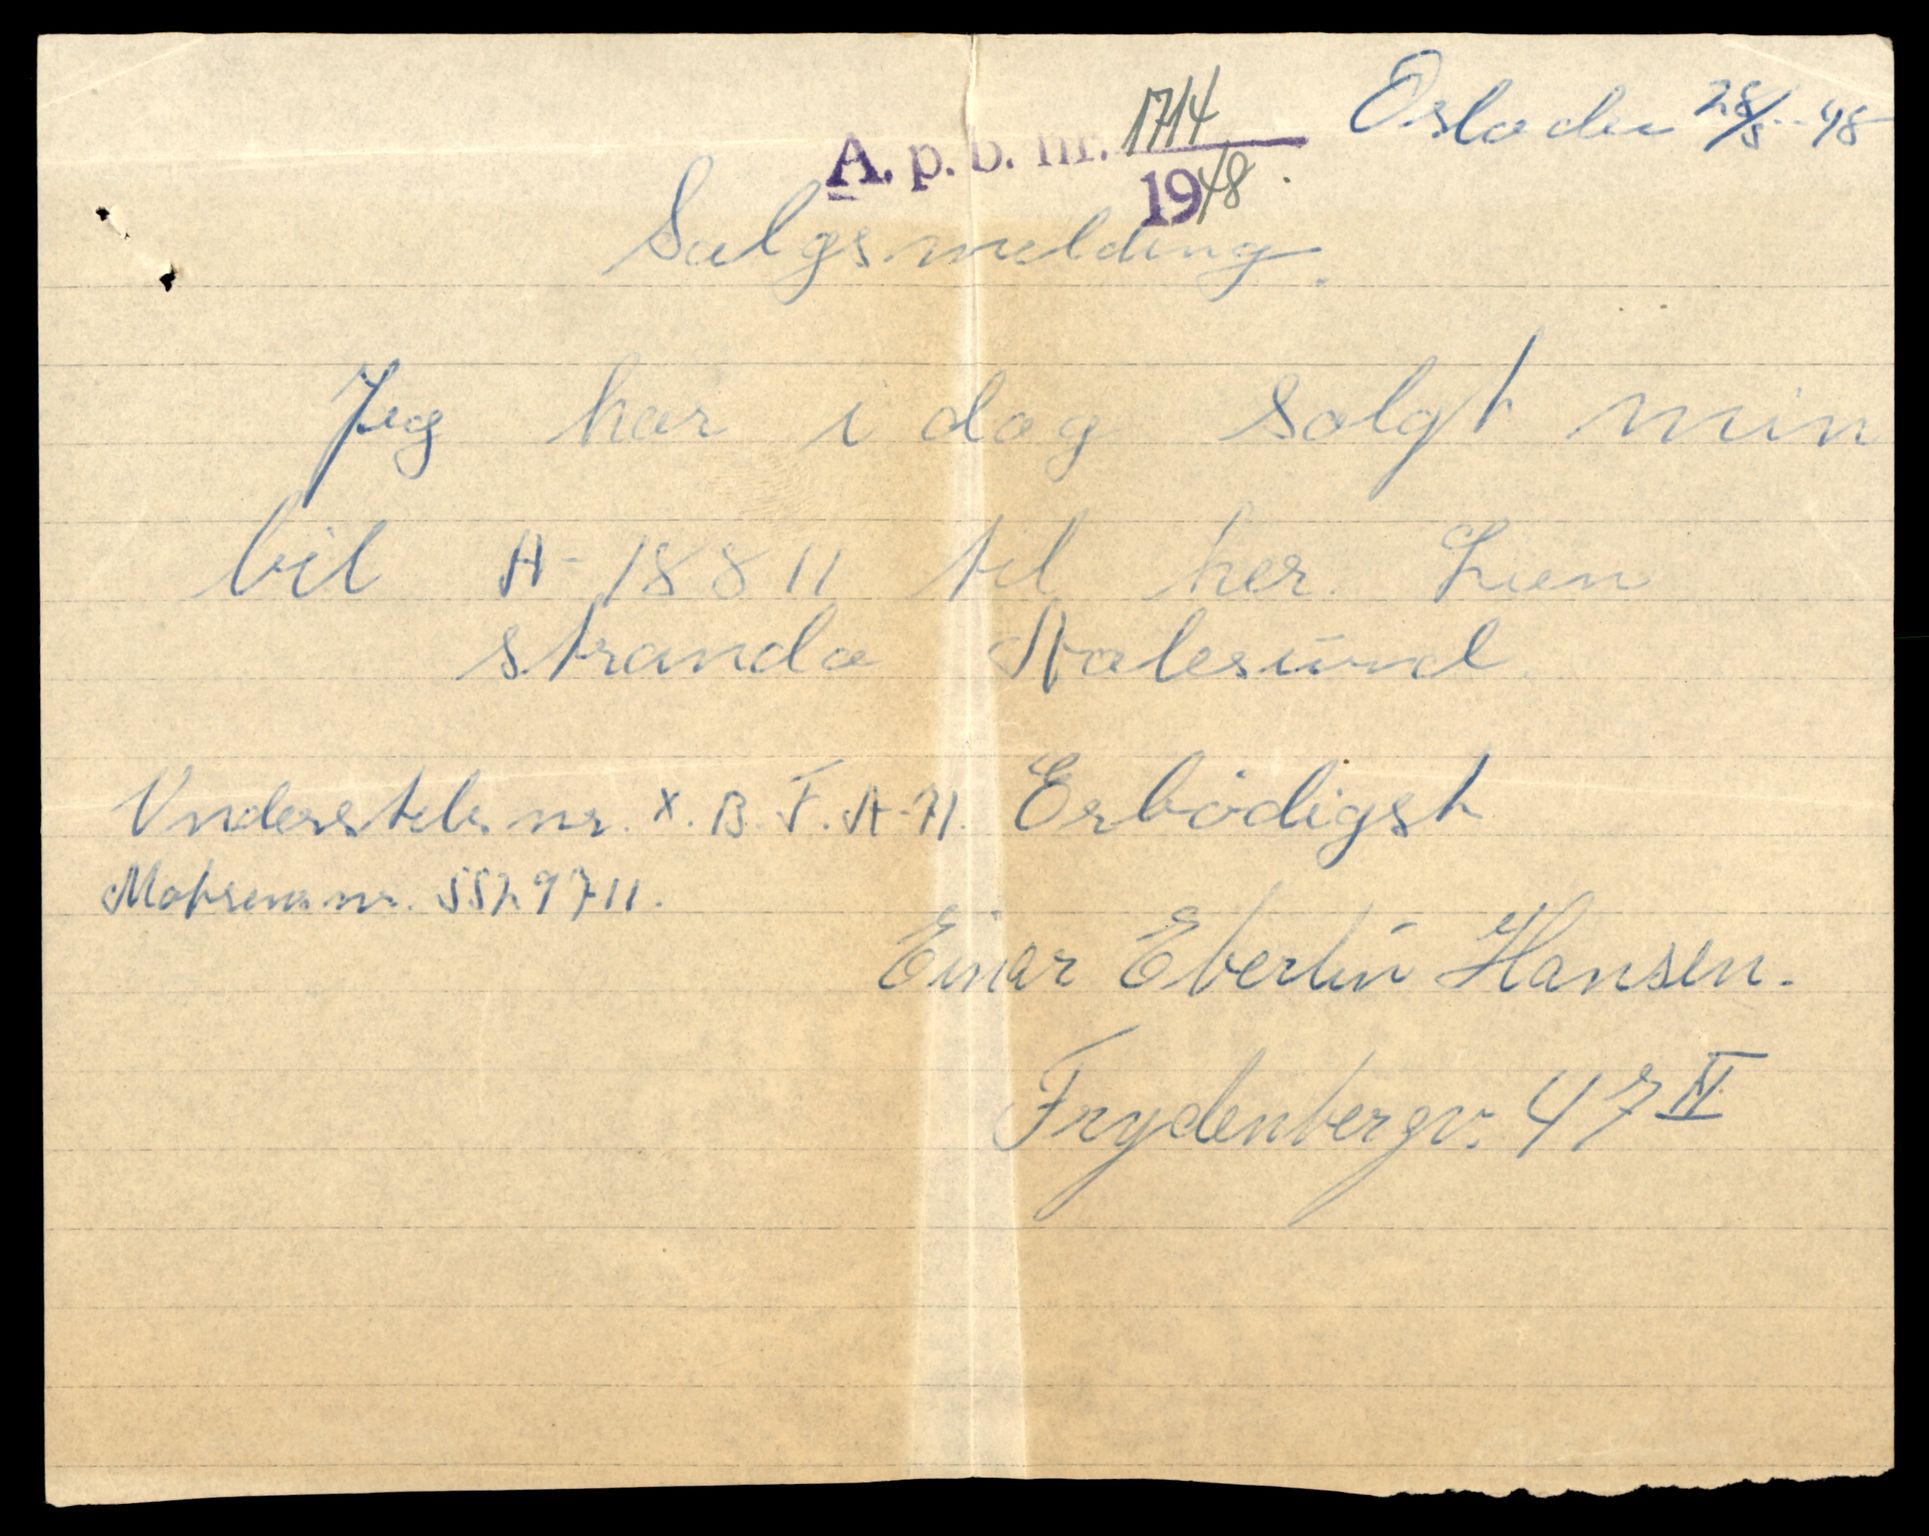 Oslo den 28/5-48
A. p. b. nr. 1714
1948.
Salgsmelding.
Jeg har i dag solgt min
bil A-18811 til her. Lien
stranda Aalesund.
Understels nr. X. B. F. A-71.
Motorens nr. 5529711.
Erbødigst
Einar Ebertin Hansen.
Frydenbergv. 47 IV